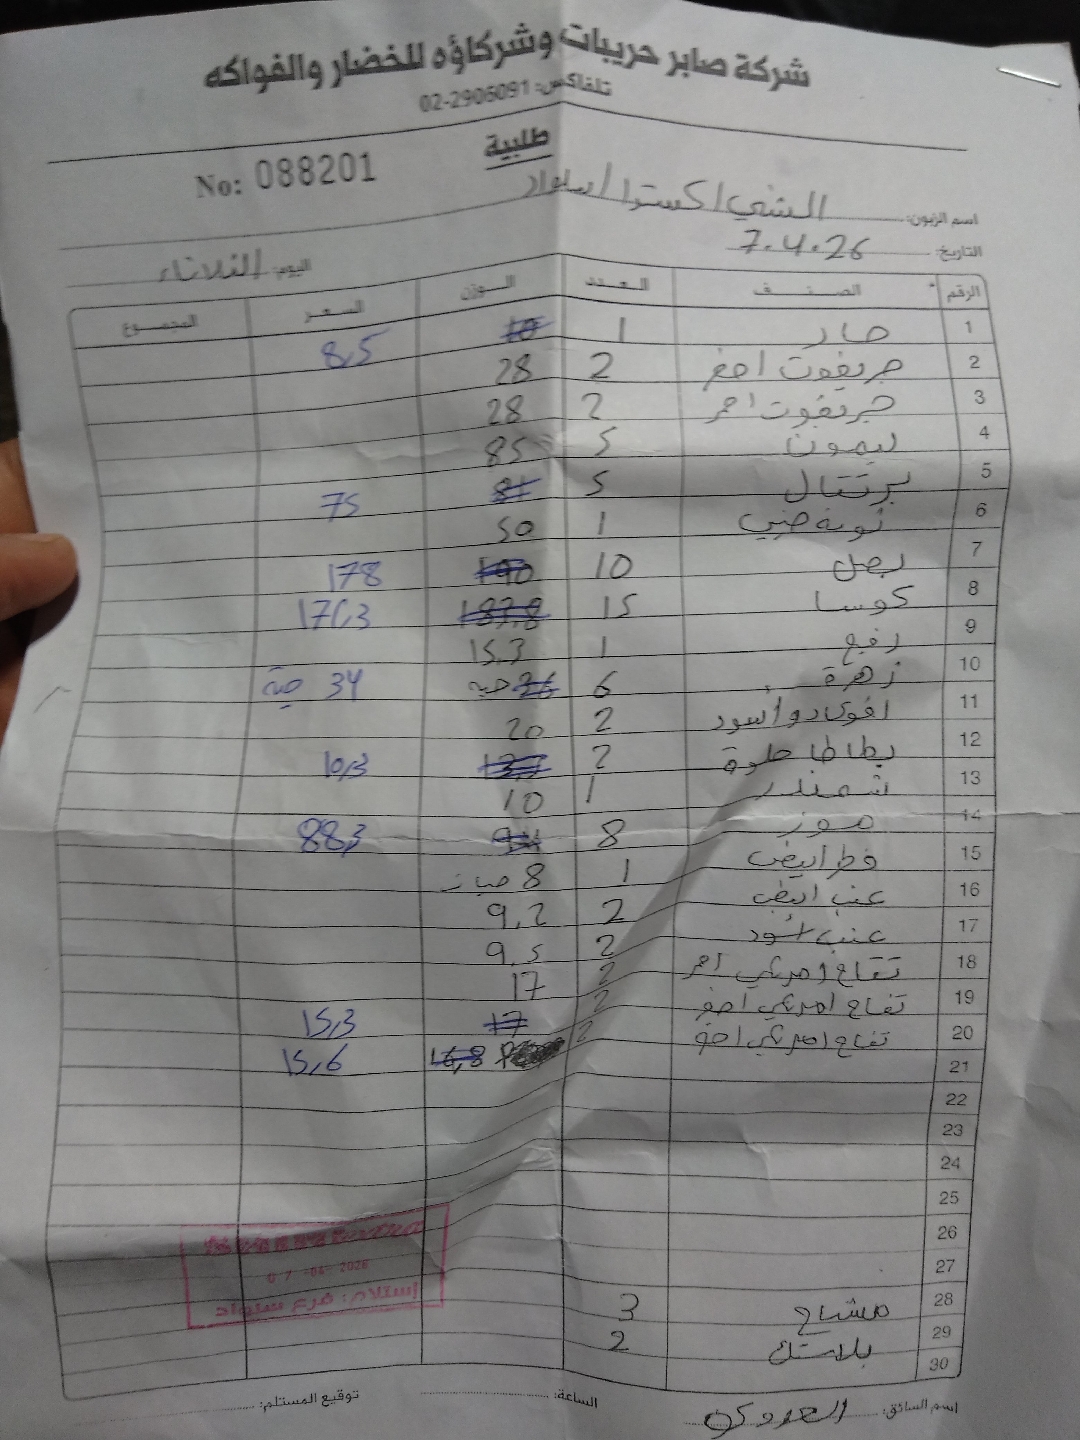 شركة صابر حريبات وشركاؤه للخضار والفواكه
تلفاكس: 02-2906091
طلبية
No: 088201
اسم الزبون: الشني اكسترا / سلواد
التاريخ: 7.4.26
اليوم: الثلاثاء
الرقم الصنف العدد الوزن السعر المجموع
1 حار 1 10 8,5
2 جريفوت اصفر 2 28
3 جريفوت احمر 2 28
4 ليمون 5 85
5 برتقال 5 81 75
6 1 50
7 بصل 10 190 178
8 كوسا 15 187.8 176,3
9 رفيع 1 15.3
10 زهرة 6 36 حبه 34 حبة
11 افوكادو أسود 2 20
12 بطاطا حلوة 2 10,3
13 شمندر 1 10
14 موز 8 94 88,3
15 فطر ابيض 1 8
16 عنب ابيض 2 9,2
17 عنب اسود 2 9,5
18 تفاح امريكي احمر 2 17
19 تفاح امريكي اخضر 2 17 15,3
20 تفاح امريكي اصفر 2 16,8 15,6
21
22
23
24
25
26
27
28 مشتاح 3
29 بلاستك 2
30
07 2026
إستلام: فرع سلواد
اسم السائق:
الساعة:
توقيع المستلم: